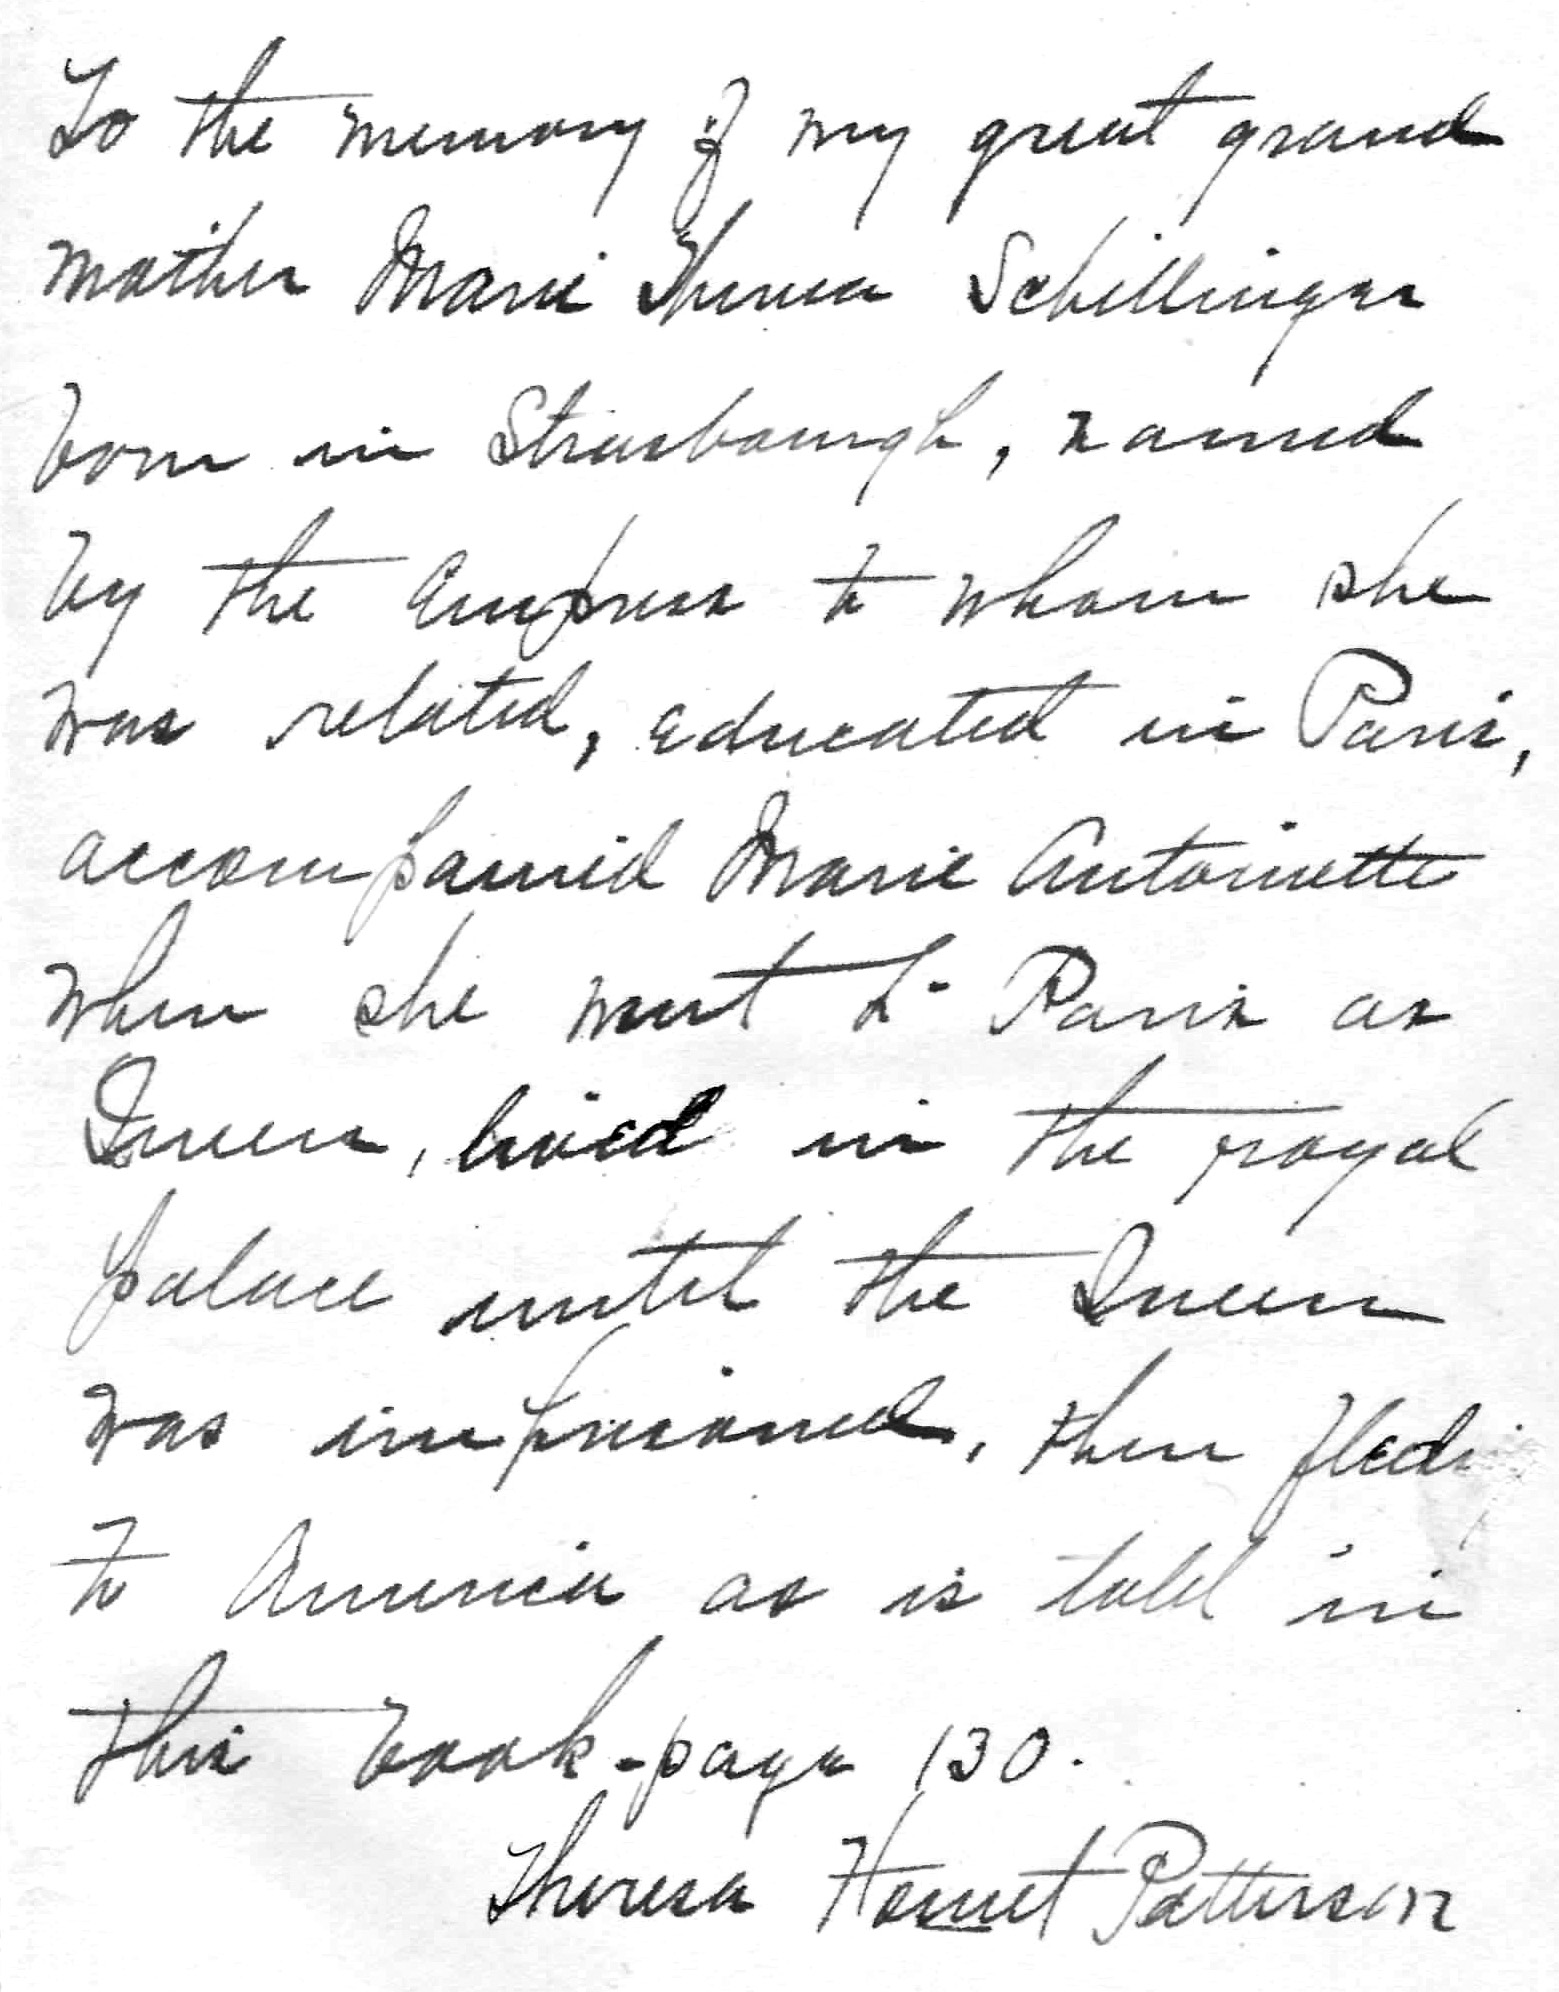 To the memory of my great grand
mother Marie Theresa Schillinger
born in Strasbourgh, named
by the Empress to whom she
was related, educated in Paris,
accompanied Marie Antoinette
when she went to Paris as
Queen, lived in the royal
palace until the Queen
was imprisoned, then fled
to America as is told in
this book - page 130.
Theresa Homet Patterson